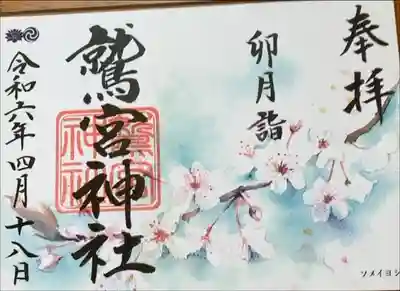 奉拝
卯月詣
鷲宮神社
令和六年四月十八日
ソメイヨシ